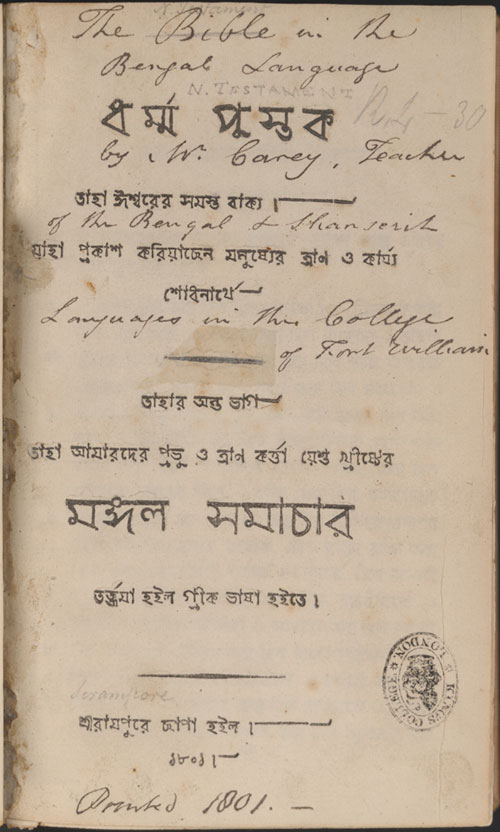 N. Testament
The Bible in the
Bengal Language
N. TESTAMENT
ধর্ম্ম পুস্তক
by Mr. Carey, Teacher
তাহা ঈশ্বরের সমস্ত বাক্য ।
of the Bengal & Shanscrit
যাহা প্রকাশ করিয়াছেন মনুষ্যের ত্রাণ ও কার্য্য
শোধনার্থে
Languages in the College
of Fort William
তাহার অন্ত ভাগ
তাহা আমারদের প্রভু ও ত্রাণ কর্ত্তা য়েশু খ্রীষ্টের
মঙ্গল সমাচার
তর্জ্জমা হইল গ্রীক ভাষা হইতে ।
KINGS COLLEGE LONDON
Serampore
শ্রীরামপুরে ছাপা হইল ।
১৮০১ ।
Printed 1801. –